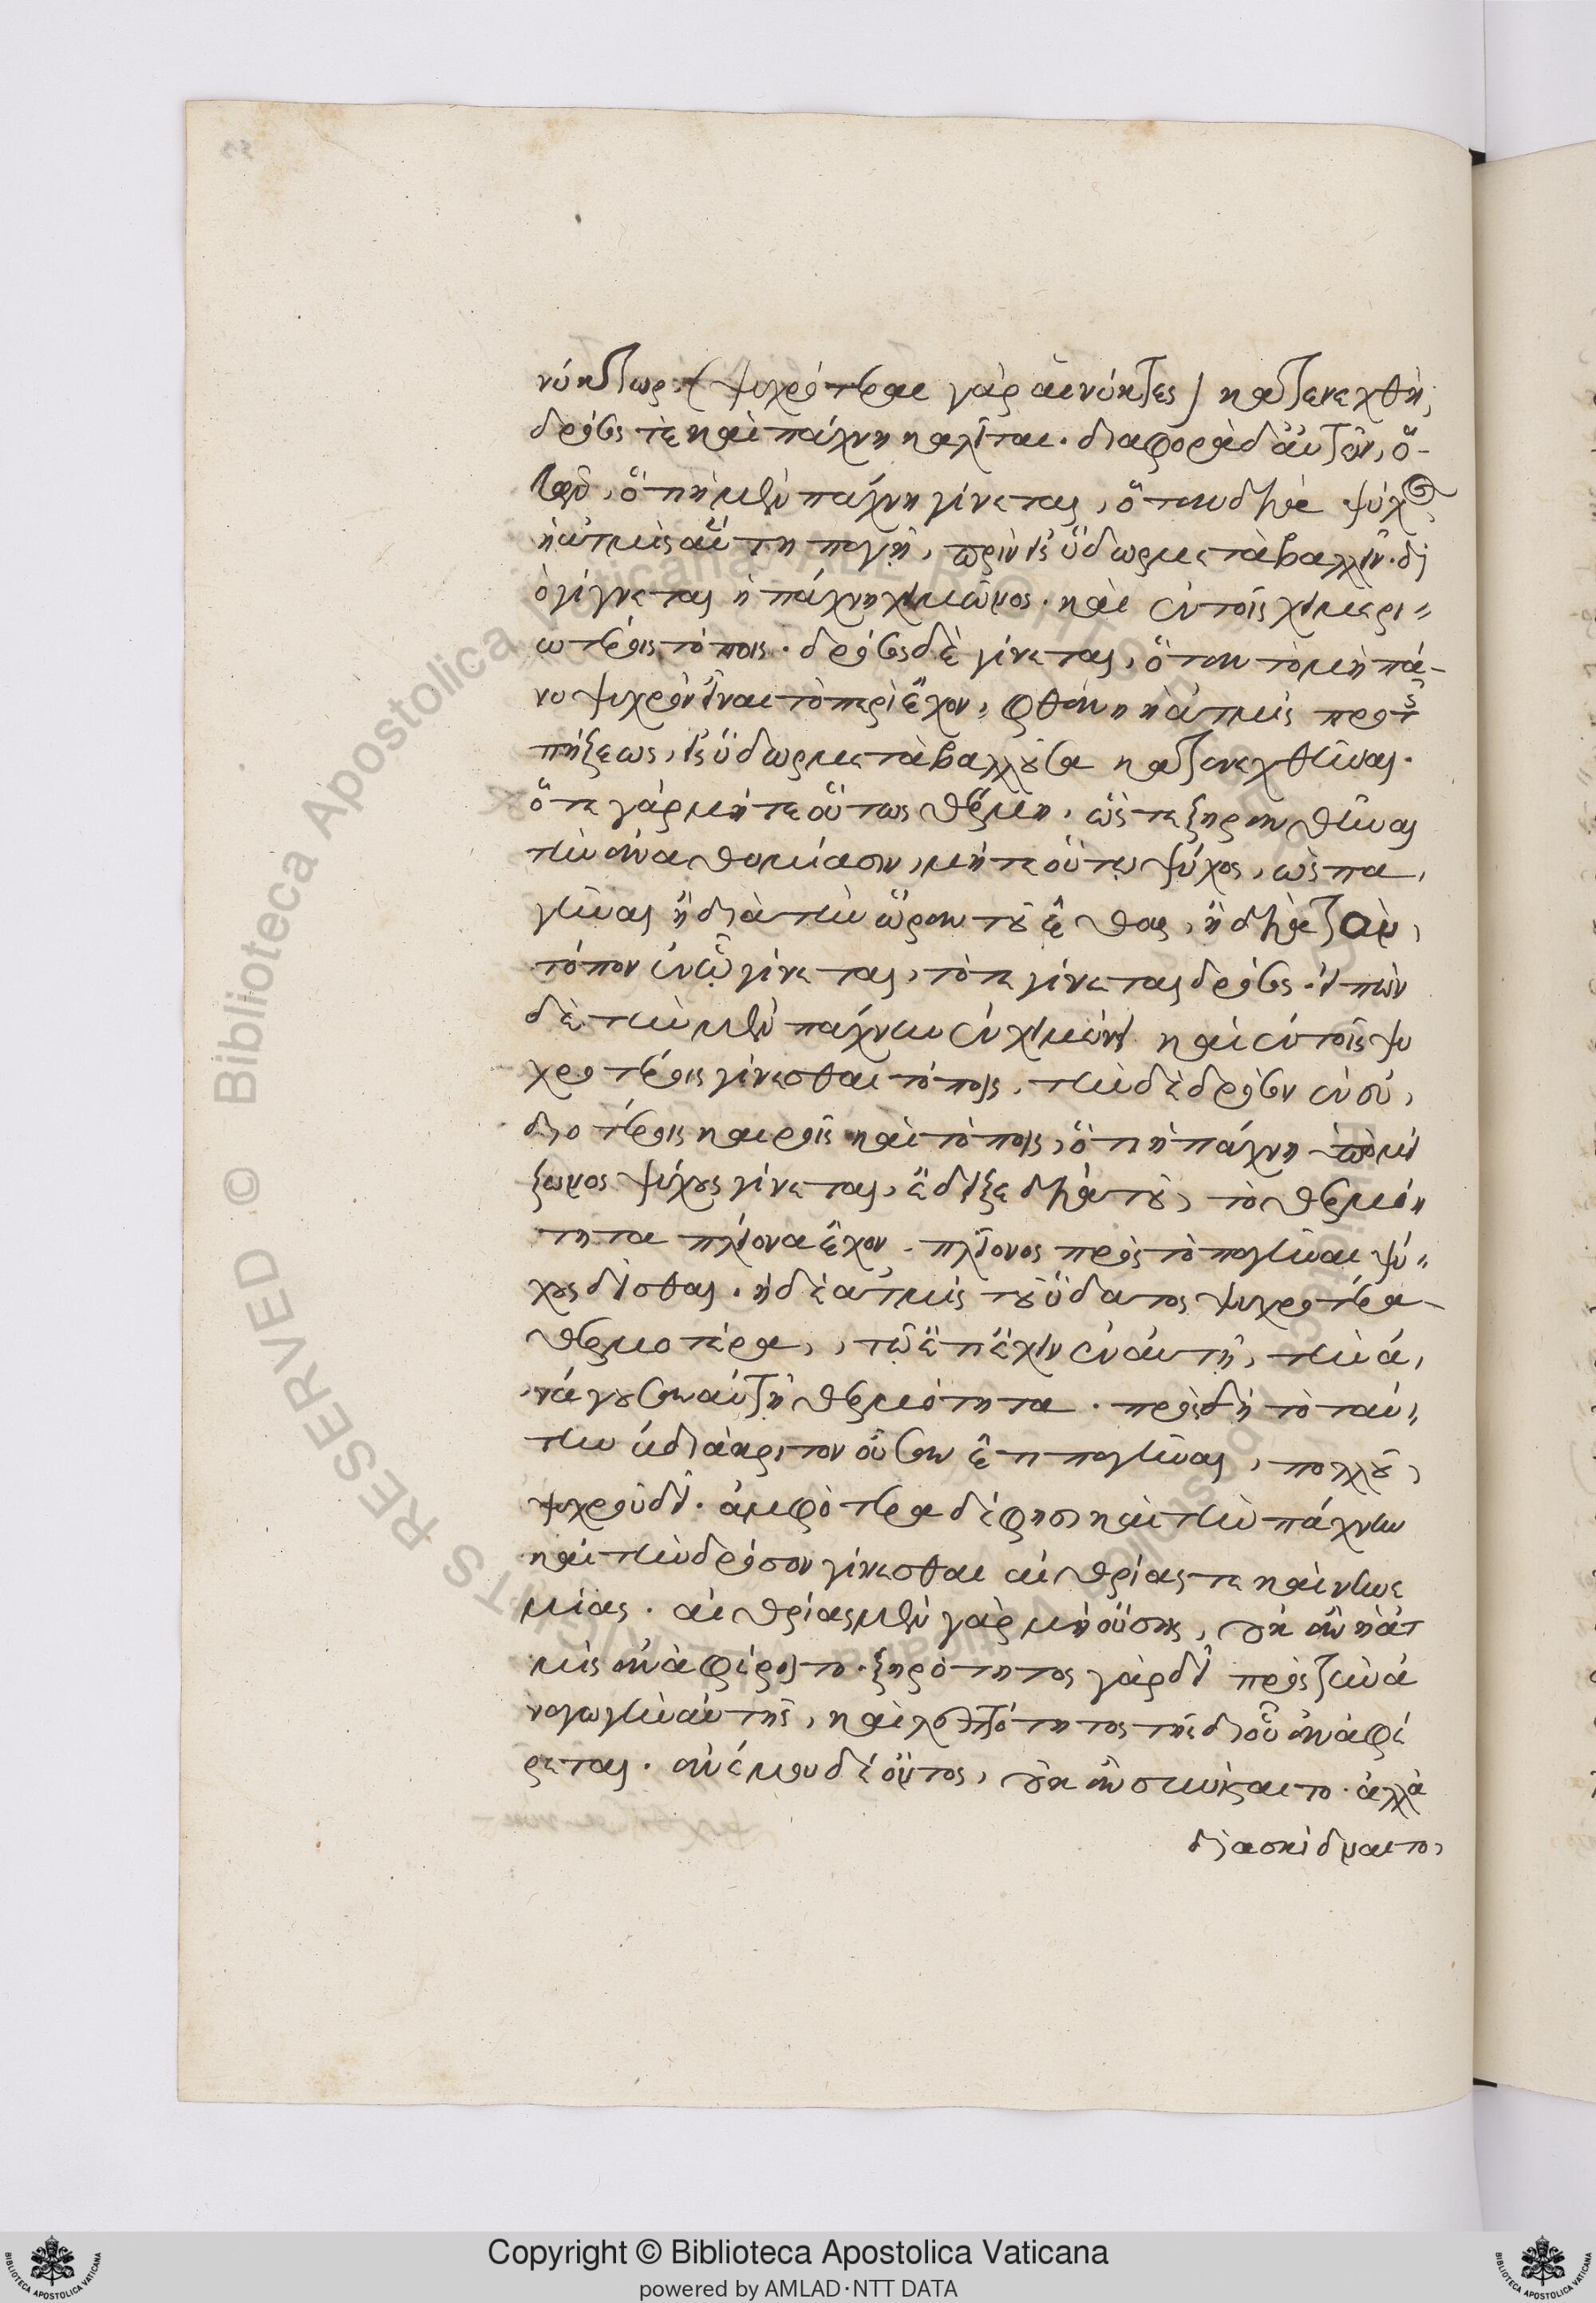 νύκτωρ· (ψυχρότεραι γὰρ αἱ νύκτες) κατενεχθῆ,
δρόσος τὲ καὶ πάχνη καλεῖται. διαφορὰ δ' αὐτῶν, ὅ-
ὅτι ἡ μὲν πάχνη γίνεται, ὅταν διὰ ψύχος
ἡ ἀτμὶς αὕτη παγῇ, πρὶν εἰς ὕδωρ μεταβαλεῖν. δι
ὸ γίγνεται ἡ πάχνη χειμῶνος. καὶ ἐν τοῖς χειμερι-
ωτέροις τόποις. δρόσος δὲ γίνεται, ὅταν τὸ μὴ πά-
νυ ψυχρὸν εἶναι τὸ περιέχον, φθάνῃ ἡ ἀτμὶς πρὸ τῆς
πήξεως, εἰς ὕδωρ μεταβαλλοῦσα κατενεχθῆναι.
ὅτε γὰρ μήτε οὕτως θέρμη, ὥστε ξηρανθῆναι
τὴν ἀναθυμίασιν, μήτε οὕτω ψύχος, ὡς πα-
γῆναι ἢ διὰ τὴν ὥραν τοῦ ἔτους, ἢ διὰ τὸν
τόπον ἐν ᾧ γίνεται, τότε γίνεται δρόσος. εἰπὼν
δὲ τὴν μὲν πάχνην ἐν χειμῶνι καὶ ἐν τοῖς ψυ
χροτέροις γίνεσθαι τόποις, τὴν δὲ δρόσον ἐν εὐ-
διοτέροις καιροῖς καὶ τόποις, ὅτι ἡ πάχνη ὑπὸ μεί
ζονος ψύχους γίνεται, ἔδειξε διὰ τοῦ, τὸ θερμό-
τητα πλείονα ἔχον, πλείονος πρὸς τὸ παγῆναι ψύ-
χους δεῖσθαι. ἡ δὲ ἀτμὶς τοῦ ὕδατος ψυχροτέρα
θερμοτέρα, τῷ ἔτι ἔχειν ἐν αὐτῇ, τὴν ἀ-
νάγουσαν αὐτὴν θερμότητα. πρὸς δὴ τὸ ταύ-
την ἀδιάκριτον οὖσαν ἔτι παγῆναι, πολλοῦ
ψυχροῦ δεῖ. ἀμφότερα δέ φησι καὶ τὴν πάχνην
καὶ τὴν δρόσον γίνεσθαι αἰθρίας τε καὶ νηνε
μίας. αἰθρίας μὲν γὰρ μὴ οὔσης, οὐκ ἂν ἡ ἀτ
μὶς ἀναφέροιτο. ξηρότητος γὰρ δεῖ πρὸς τὴν ἀ
ναγωγὴν αὐτῆς, καὶ λεπτότητος τῆς δι' οὗ ἀναφέ
ρεται. ἀνέμου δὲ ὄντος, οὐκ ἂν συνίσταιτο. ἀλλὰ
διασκίδναιτο,
Copyright © Biblioteca Apostolica Vaticana
powered by AMLAD·NTT DATA